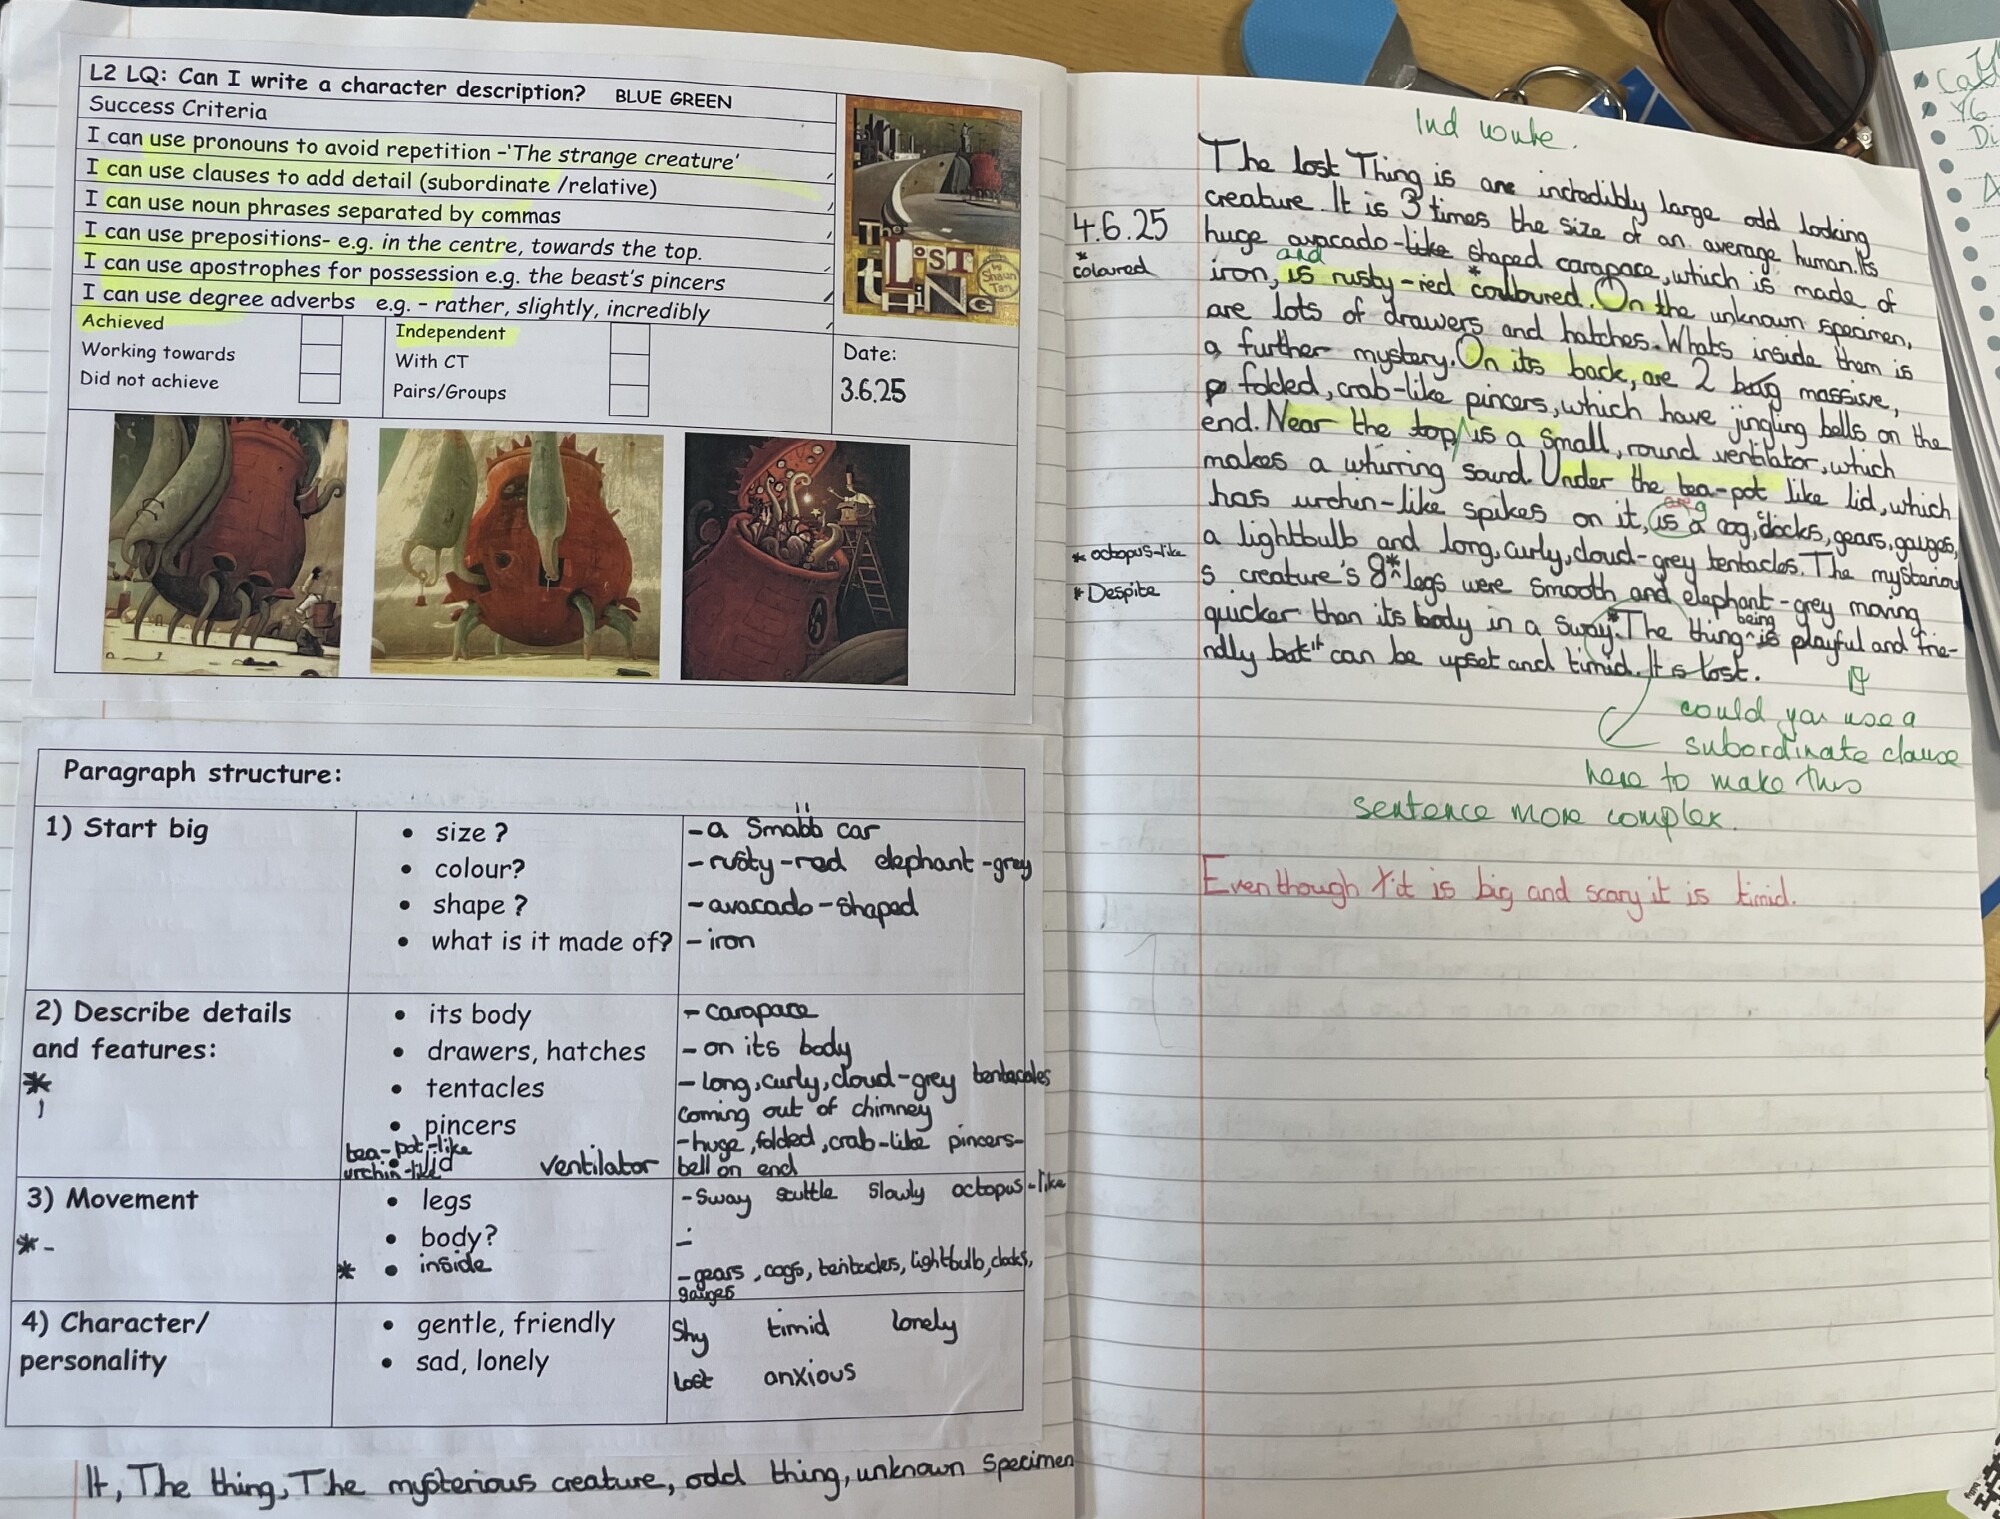 L2 LQ: Can I write a character description? BLUE GREEN
Success Criteria
I can use pronouns to avoid repetition -'The strange creature'
I can use clauses to add detail (subordinate /relative)
I can use noun phrases separated by commas
I can use prepositions- e.g. in the centre, towards the top.
I can use apostrophes for possession e.g. the beast's pincers
I can use degree adverbs e.g. - rather, slightly, incredibly
Achieved
Working towards
Did not achieve
Independent
With CT
Pairs/Groups
Date:
3.6.25
The
LOST
thing
by
Shaun
Tan
Paragraph structure:
1) Start big
size ?
colour?
shape ?
what is it made of?
- a small car
- rusty-red elephant-grey
- avacado-shaped
- iron
2) Describe details
and features:
*
its body
drawers, hatches
tentacles
pincers
tea-pot-like
urchin-like lid ventilator
- carapace
- on its body
- long, curly, cloud-grey tentacles
coming out of chimney
- huge, folded, crab-like pincers-
bell on end
3) Movement
* -
legs
body?
* inside
- sway scuttle slowly octopus-like
-
- gears, cogs, tentacles, lightbulb, clocks,
gauges
4) Character/
personality
gentle, friendly
sad, lonely
Shy timid lonely
lost anxious
It, The thing, The mysterious creature, odd thing, unknown specimen
Ind write.
4.6.25
* coloured
* octopus-like
* Despite
The lost Thing is an incredibly large odd looking
creature. It is 3 times the size of an average human. Its
huge avacado-like shaped carapace, which is made of
and
iron, is rusty-red * . On the unknown specimen,
are lots of drawers and hatches. Whats inside them is
a further mystery. On its back, are 2 massive,
folded, crab-like pincers, which have jingling bells on the
end. Near the top/ is a small, round ventilator, which
makes a whirring sound. Under the tea-pot like lid, which
are
has urchin-like spikes on it, is a cog, clocks, gears, gauges,
a lightbulb and long, curly, cloud-grey tentacles. The mysteriou
s creature's 8* legs were smooth and elephant-grey moving
quicker than its body in a sway. * The thing being is playful and frie-
ndly but it can be upset and timid. It is lost.
could you use a
subordinate clause
here to make this
sentence more complex.
Even though it is big and scary it is timid.